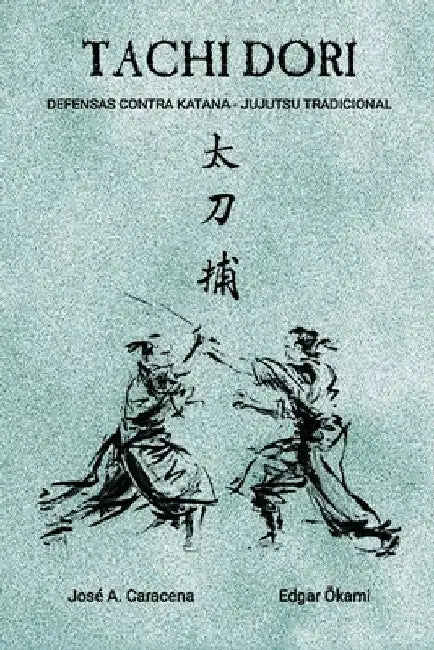 TACHI DORI
DEFENSAS CONTRA KATANA - JUJUTSU TRADICIONAL
太
刀
捕
José A. Caracena
Edgar Ōkami